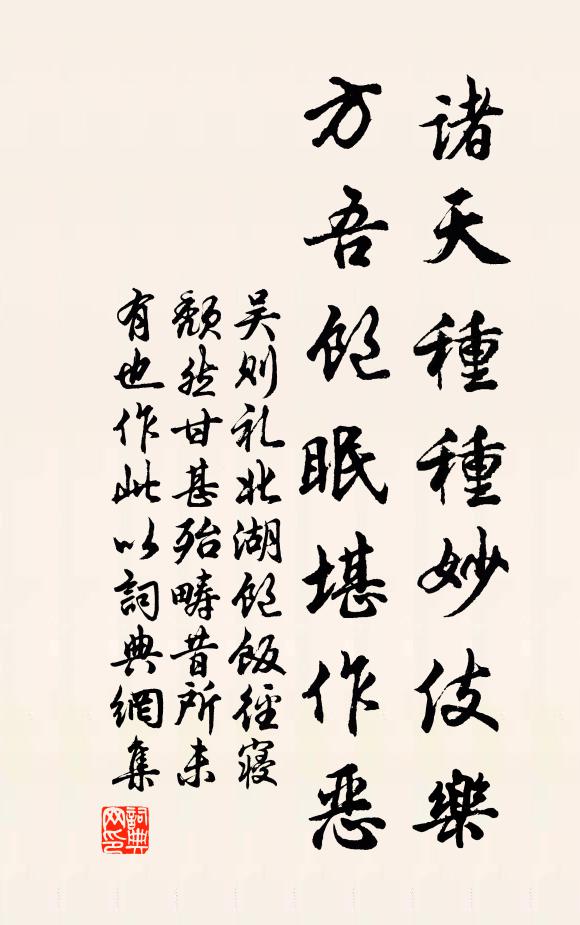 諸天種種妙伎樂
方吾飽眠堪作惡
吴則礼北湖飽飯徑寢
頹然甘甚殆疇昔所未
有也作此以詞典網集
詞典
网印